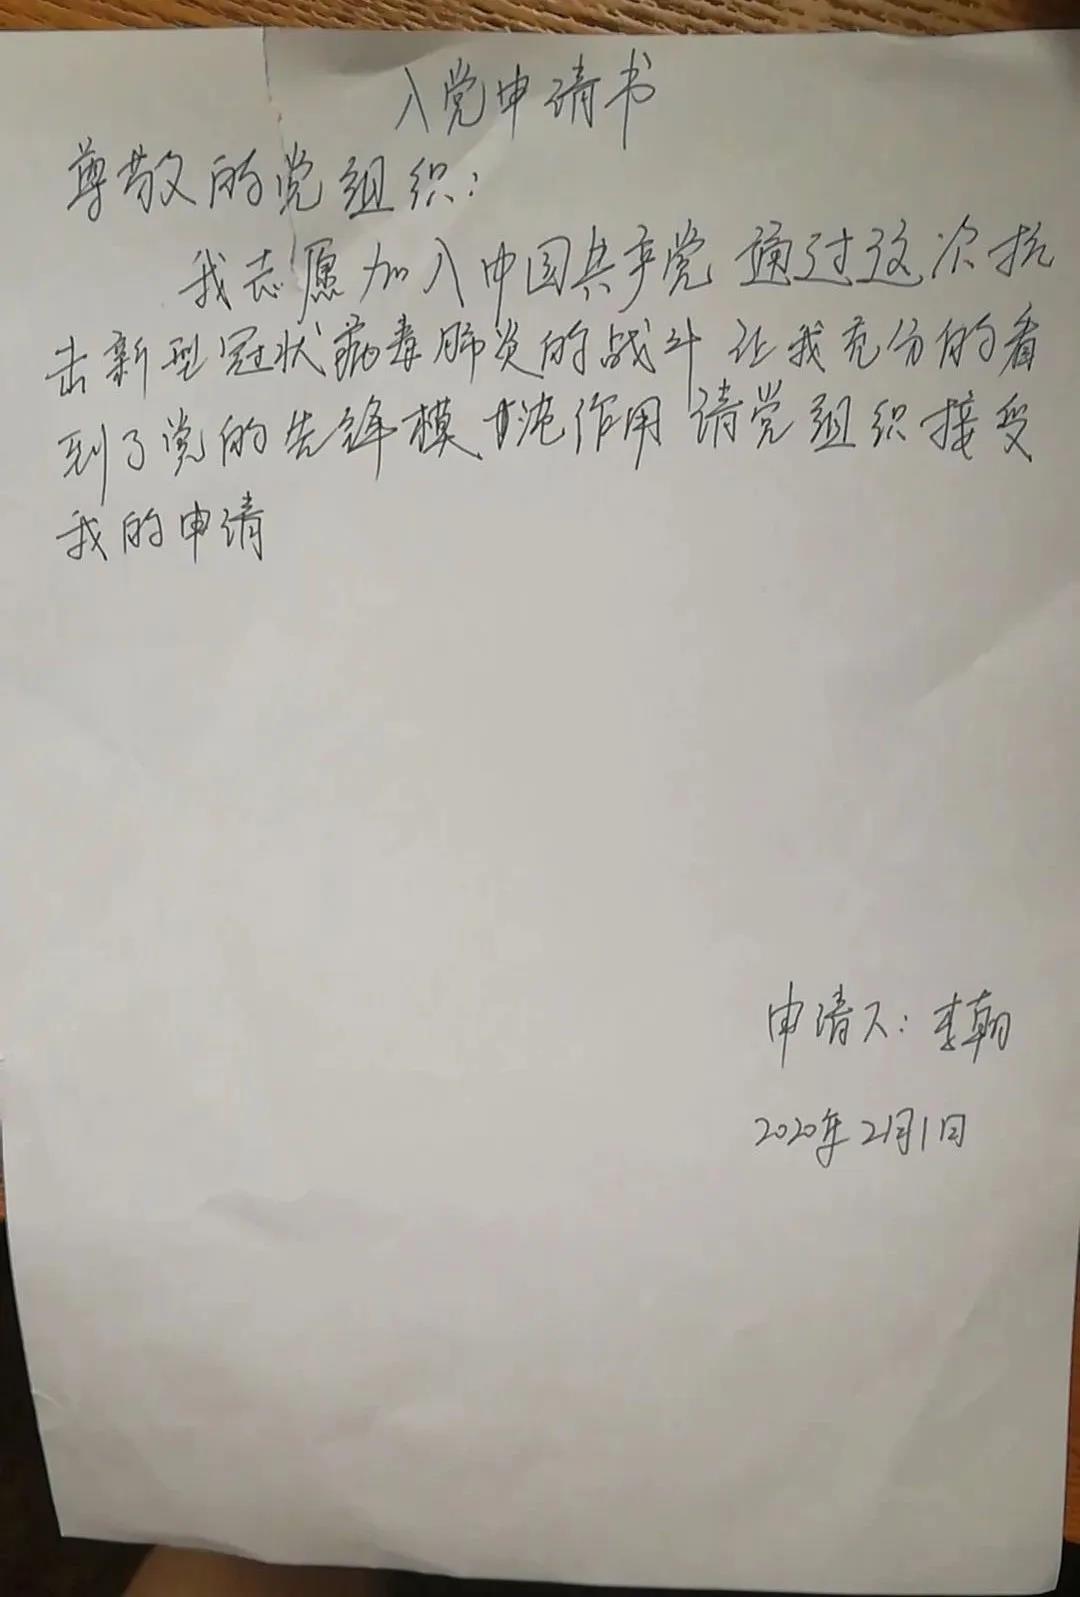 入党申请书
尊敬的党组织：
我志愿加入中国共产党 通过这次抗
击新型冠状病毒肺炎的战斗 让我充分的看
到了党的先锋模范作用 请党组织接受
我的申请
申请人：李翰
2020年2月1日